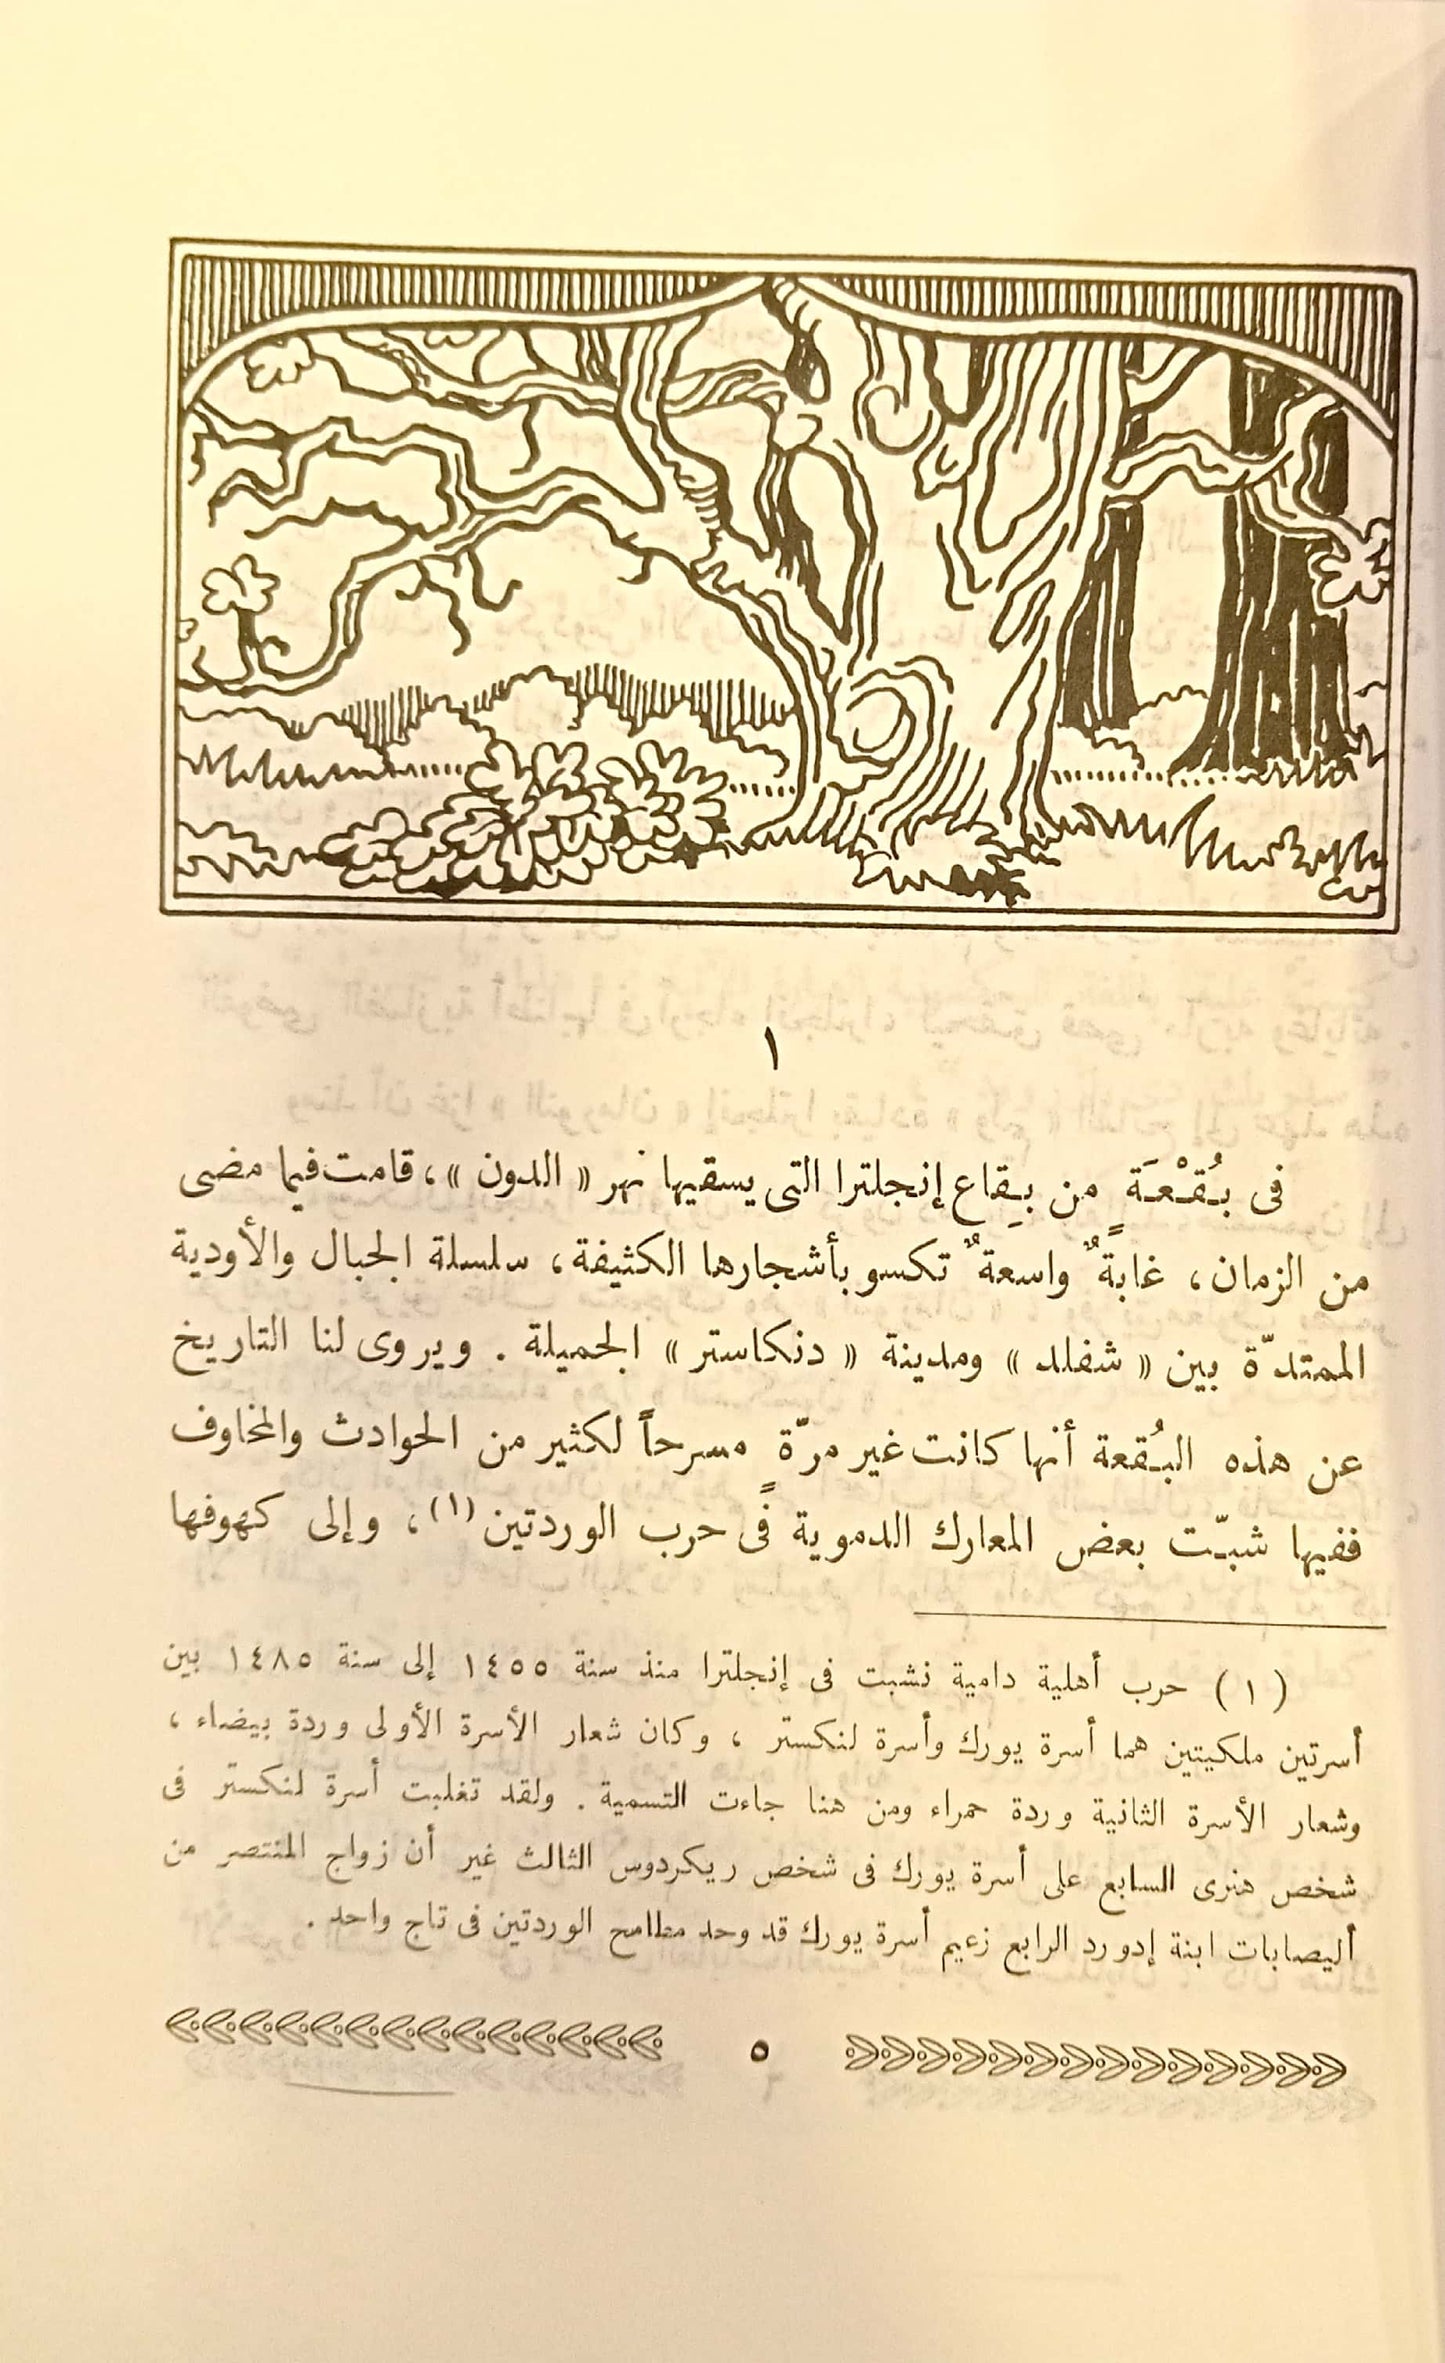 ١
فى بُقْعَةٍ من بِقاع إنجلترا التى يسقيها نهر « الدون » ، قامت فيما مضى
من الزمان ، غابةٌ واسعةٌ تكسو بأشجارها الكثيفة ، سلسلة الجبال والأودية
الممتدّة بين « شفلد » ومدينة « دنكاستر » الجميلة . ويروى لنا التاريخ
عن هذه البُقعة أنها كانت غير مرّةٍ مسرحاً لكثير من الحوادث والمخاوف
ففيها شبّت بعض المعارك الدموية فى حرب الوردتين (١) ، وإلى كهوفها
( ١ ) حرب أهلية دامية نشبت فى إنجلترا منذ سنة ١٤٥٥ إلى سنة ١٤٨٥ بين
أسرتين ملكيتين هما أسرة يورك وأسرة لنكستر ، وكان شعار الأسرة الأولى وردة بيضاء ،
وشعار الأسرة الثانية وردة حمراء ومن هنا جاءت التسمية . ولقد تغلبت أسرة لنكستر فى
شخص هنرى السابع على أسرة يورك فى شخص ريكردوس الثالث غير أن زواج المنتصر من
أليصابات ابنة إدورد الرابع زعيم أسرة يورك قد وحد مطامح الوردتين فى تاج واحد .
٥